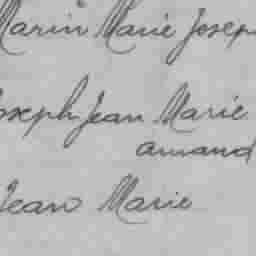 Marin Marie Josep
oseph Jean Marie
amand
Jean Marie